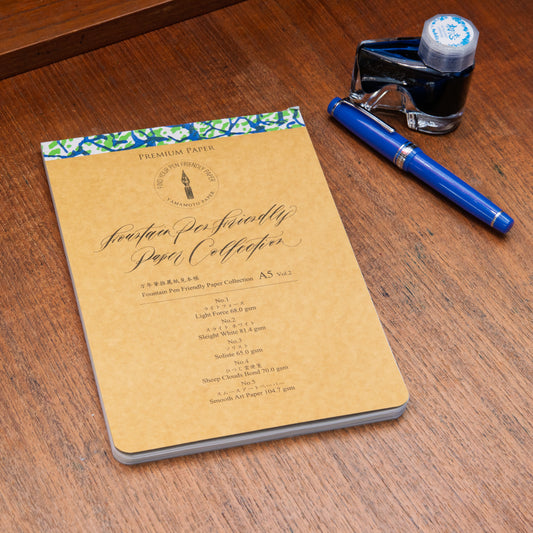 PREMIUM PAPER
FIND YOUR PEN FRIENDLY PAPER
YAMAMOTO PAPER
Fountain Pen Friendly
Paper Collection
Fountain Pen Friendly Paper Collection A5 Vol.2
No.1
ライトフォース
Light Force 68.0 gsm
No.2
スライト ホワイト
Sleight White 81.4 gsm
No.3
ソリスト
Soliste 65.0 gsm
No.4
ひつじ雲便箋
Sheep Clouds Bond 70.0 gsm
No.5
スムースアートペーパー
Smooth Art Paper 104.7 gsm